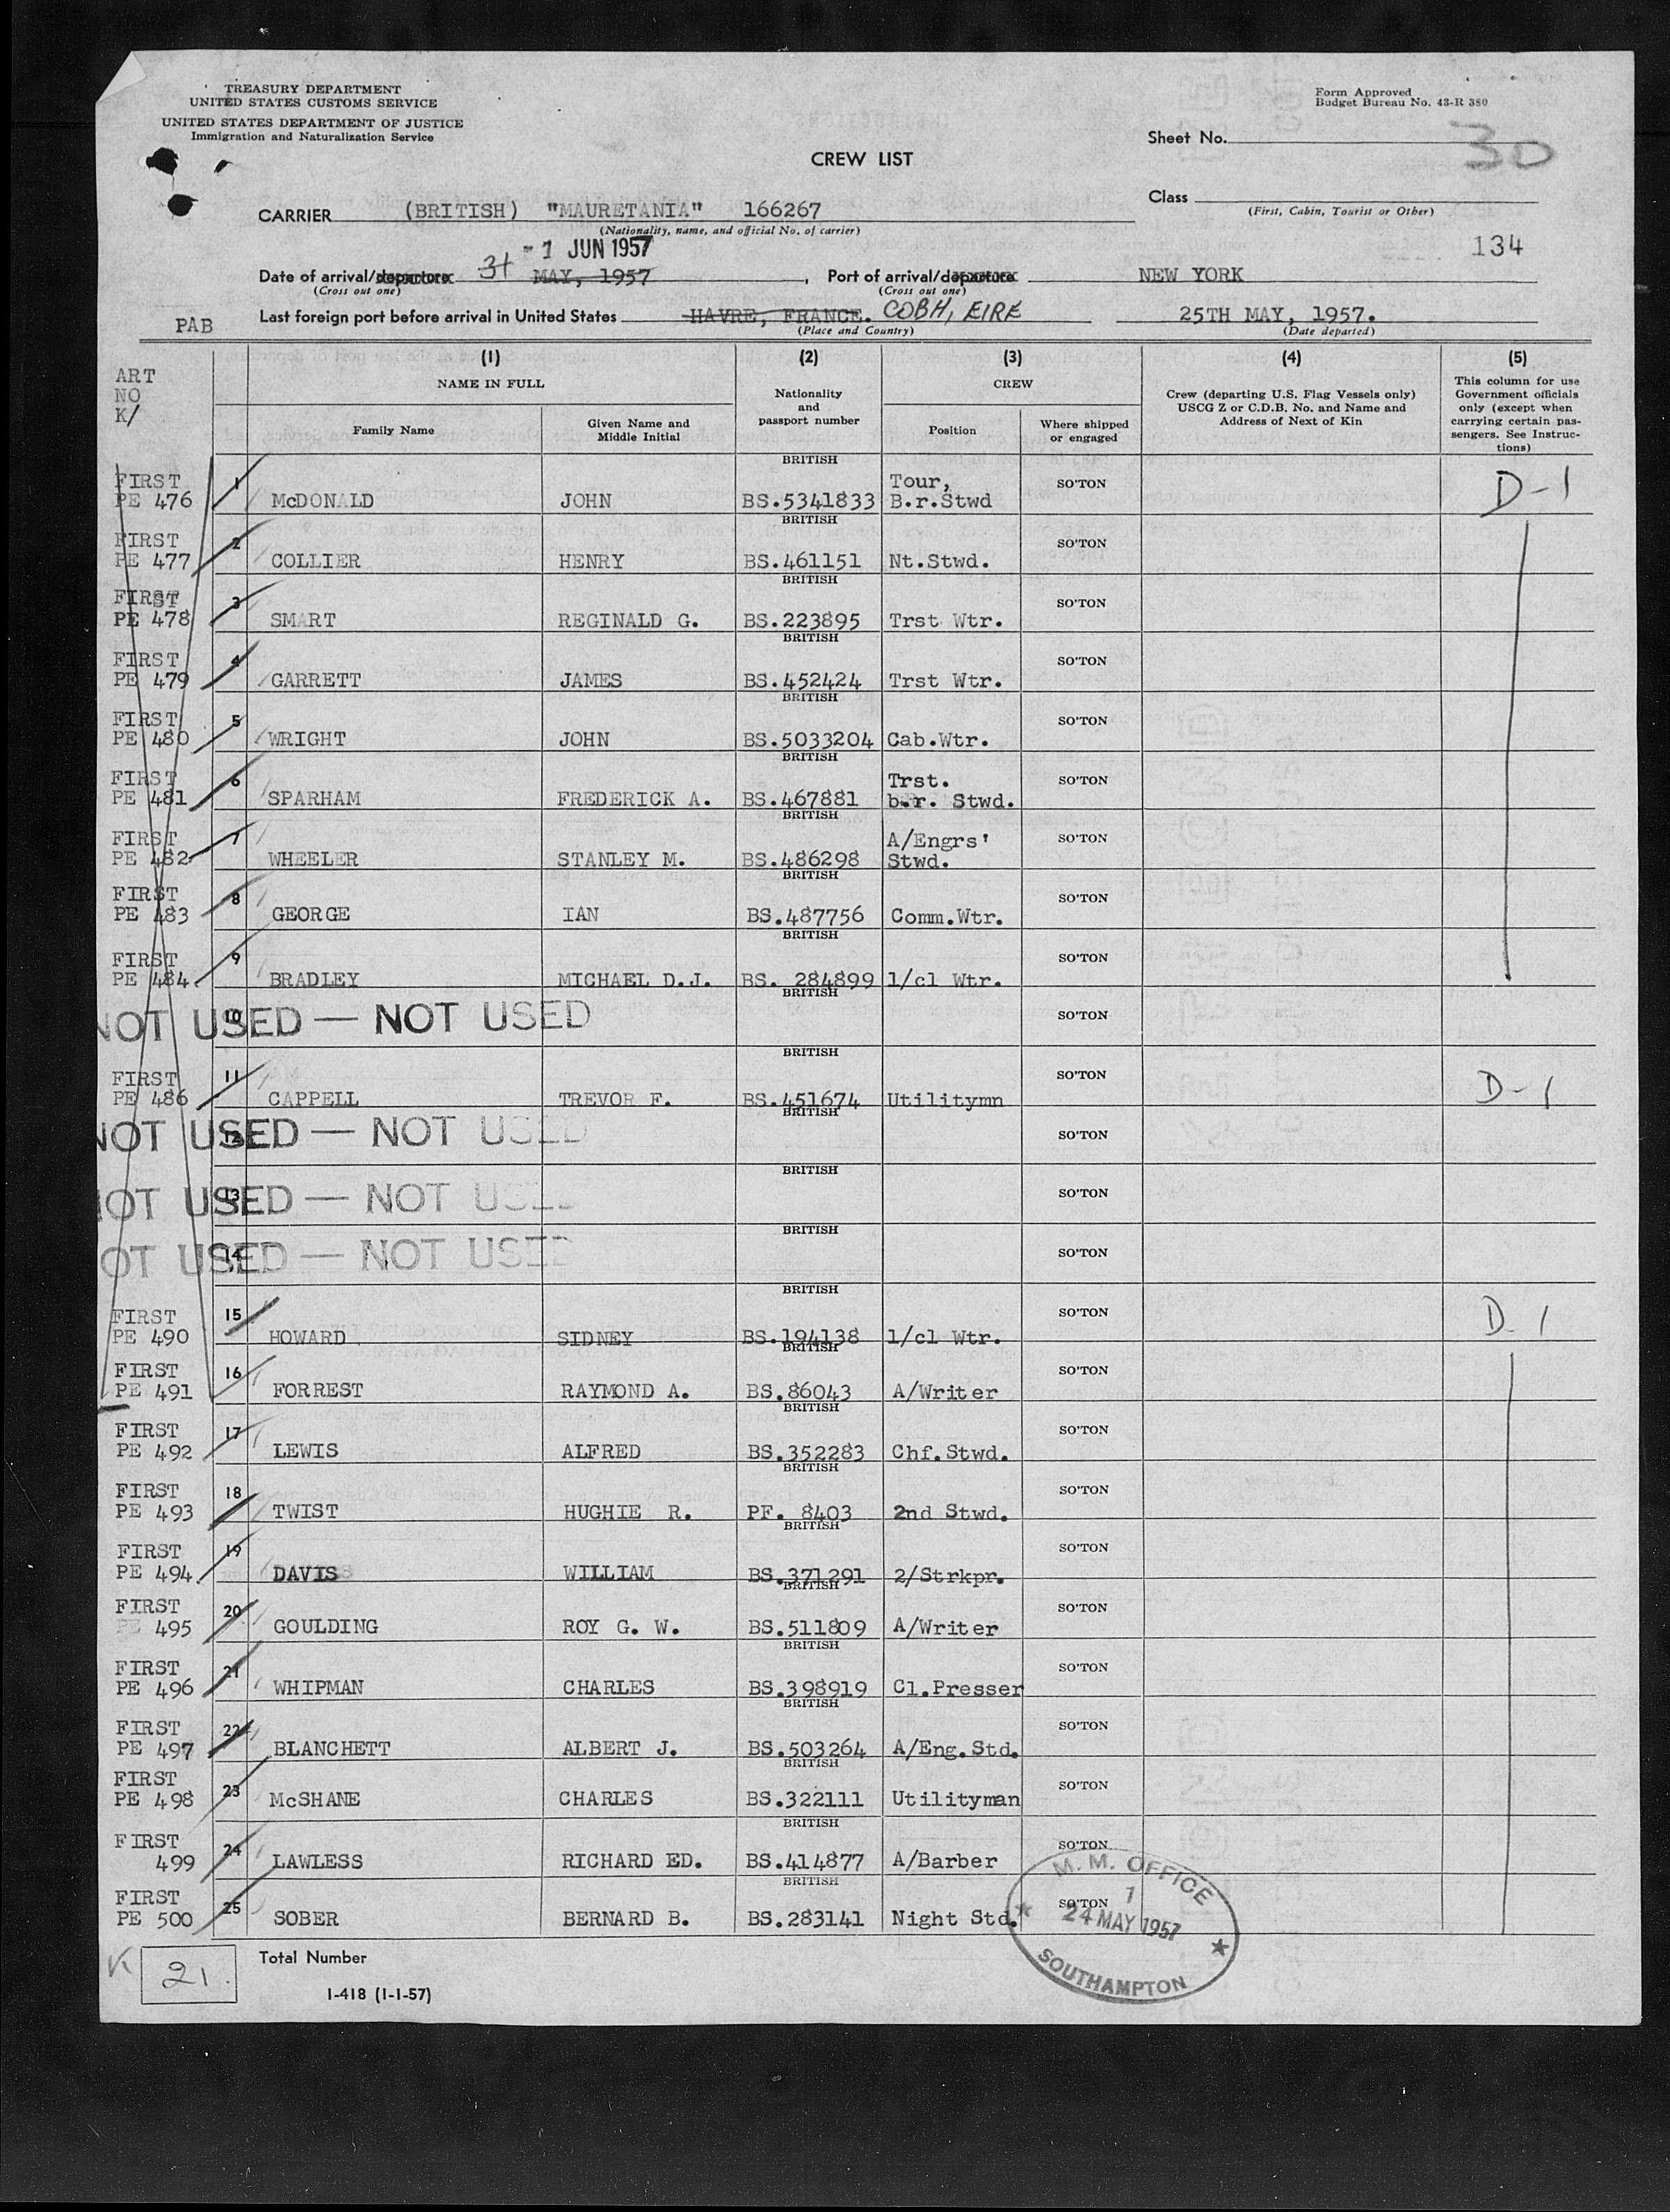 TREASURY DEPARTMENT
UNITED STATES CUSTOMS SERVICE
UNITED STATES DEPARTMENT OF JUSTICE
Immigration and Naturalization Service
Form Approved
Budget Bureau No. 43-R 380
Sheet No. 30
CREW LIST
Class
(First, Cabin, Tourist or Other)
CARRIER (BRITISH) "MAURETANIA" 166267
(Nationality, name, and official No. of carrier)
134
- 1 JUN 1957
Date of arrival/departure 31 MAY, 1957, Port of arrival/departure NEW YORK
(Cross out one) (Cross out one)
PAB Last foreign port before arrival in United States HAVRE, FRANCE. COBH, EIRE 25TH MAY, 1957.
(Place and Country) (Date departed)
ART
NO
K/
(1) (2) (3) (4) (5)
NAME IN FULL
Family Name
Given Name and
Middle Initial
Nationality
and
passport number
CREW
Position
Where shipped
or engaged
Crew (departing U.S. Flag Vessels only)
USCG Z or C.D.B. No. and Name and
Address of Next of Kin
This column for use
Government officials
only (except when
carrying certain pas-
sengers. See Instruc-
tions)
FIRST PE 476 1 McDONALD JOHN BRITISH BS.5341833 Tour, B.r.Stwd SO'TON D-1
FIRST PE 477 2 COLLIER HENRY BRITISH BS.461151 Nt.Stwd. SO'TON
FIRST PE 478 3 SMART REGINALD G. BRITISH BS.223895 Trst Wtr. SO'TON
FIRST PE 479 4 GARRETT JAMES BRITISH BS.452424 Trst Wtr. SO'TON
FIRST PE 480 5 WRIGHT JOHN BRITISH BS.5033204 Cab.Wtr. SO'TON
FIRST PE 481 6 SPARHAM FREDERICK A. BRITISH BS.467881 Trst. b.r. Stwd. SO'TON
FIRST PE 482 7 WHEELER STANLEY M. BRITISH BS.486298 A/Engrs' Stwd. SO'TON
FIRST PE 483 8 GEORGE IAN BRITISH BS.487756 Comm.Wtr. SO'TON
FIRST PE 484 9 BRADLEY MICHAEL D.J. BRITISH BS. 284899 1/cl Wtr. SO'TON
NOT USED — NOT USED 10 BRITISH SO'TON
FIRST PE 486 11 CAPPELL TREVOR F. BRITISH BS.451674 Utilitymn SO'TON D-1
NOT USED — NOT USED 12 BRITISH SO'TON
NOT USED — NOT USED 13 BRITISH SO'TON
NOT USED — NOT USED 14 BRITISH SO'TON
FIRST PE 490 15 HOWARD SIDNEY BRITISH BS.194138 1/cl Wtr. SO'TON D-1
FIRST PE 491 16 FORREST RAYMOND A. BRITISH BS.86043 A/Writer SO'TON
FIRST PE 492 17 LEWIS ALFRED BRITISH BS.352283 Chf.Stwd. SO'TON
FIRST PE 493 18 TWIST HUGHIE R. BRITISH PF. 8403 2nd Stwd. SO'TON
FIRST PE 494 19 DAVIS WILLIAM BRITISH BS.371291 2/Strkpr. SO'TON
FIRST PE 495 20 GOULDING ROY G. W. BRITISH BS.511809 A/Writer SO'TON
FIRST PE 496 21 WHIPMAN CHARLES BRITISH BS.398919 Cl.Presser SO'TON
FIRST PE 497 22 BLANCHETT ALBERT J. BRITISH BS.503264 A/Eng.Std. SO'TON
FIRST PE 498 23 McSHANE CHARLES BRITISH BS.322111 Utilityman SO'TON
FIRST 499 24 LAWLESS RICHARD ED. BRITISH BS.414877 A/Barber SO'TON
FIRST PE 500 25 SOBER BERNARD B. BRITISH BS.283141 Night Std. SO'TON
M. M. OFFICE
1
24 MAY 1957
SOUTHAMPTON
K 21. Total Number
I-418 (1-1-57)